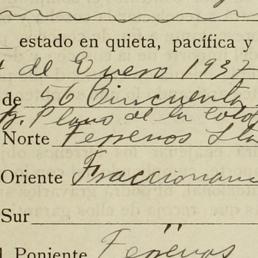 estado en quieta, pacífica y
de Enero 1937
de 56 Cincuenta
Plano de la
Norte Terrenos
Oriente
Sur "
Poniente Terrenos